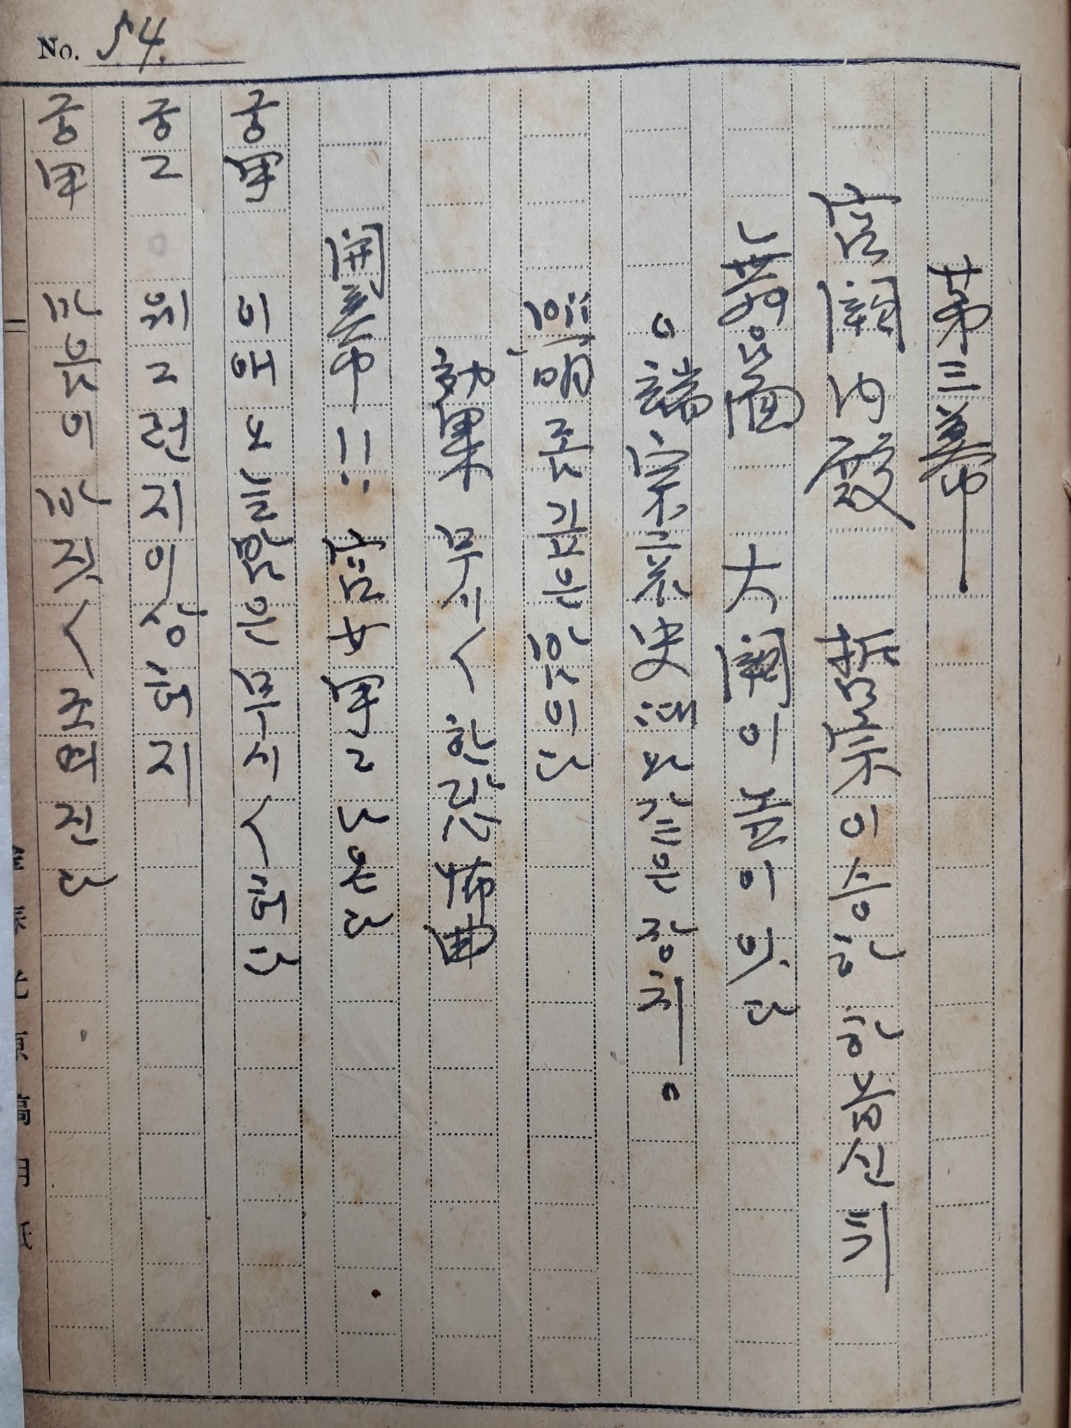 No. 54.
第三幕—
宮闕內殿 哲宗이승하 하옵신뒤
舞台面 大闕이높이이다
端宗哀史때와같은장치—
照明 좀깊은밤이다
効果 무시〱한 恐怖曲
開幕!! 宮女甲乙나온다
궁甲 이애오늘밤은무시〱하다
궁乙 왜그런지이상하지
궁甲 마음이 〱조여진다